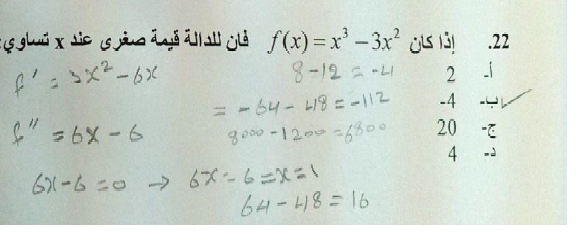 22. إذا كان f(x) = x³ − 3x² فان للدالة قيمة صغرى عند x تساوي:
أ- 2 8-12 = -4 f' = 3x² - 6x
ب- -4 = -64 - 48 = -112
ج- 20 8000 - 1200 = 6800 f" = 6x - 6
د- 4
6x-6=0 → 6x=6=x=1
64-48=16